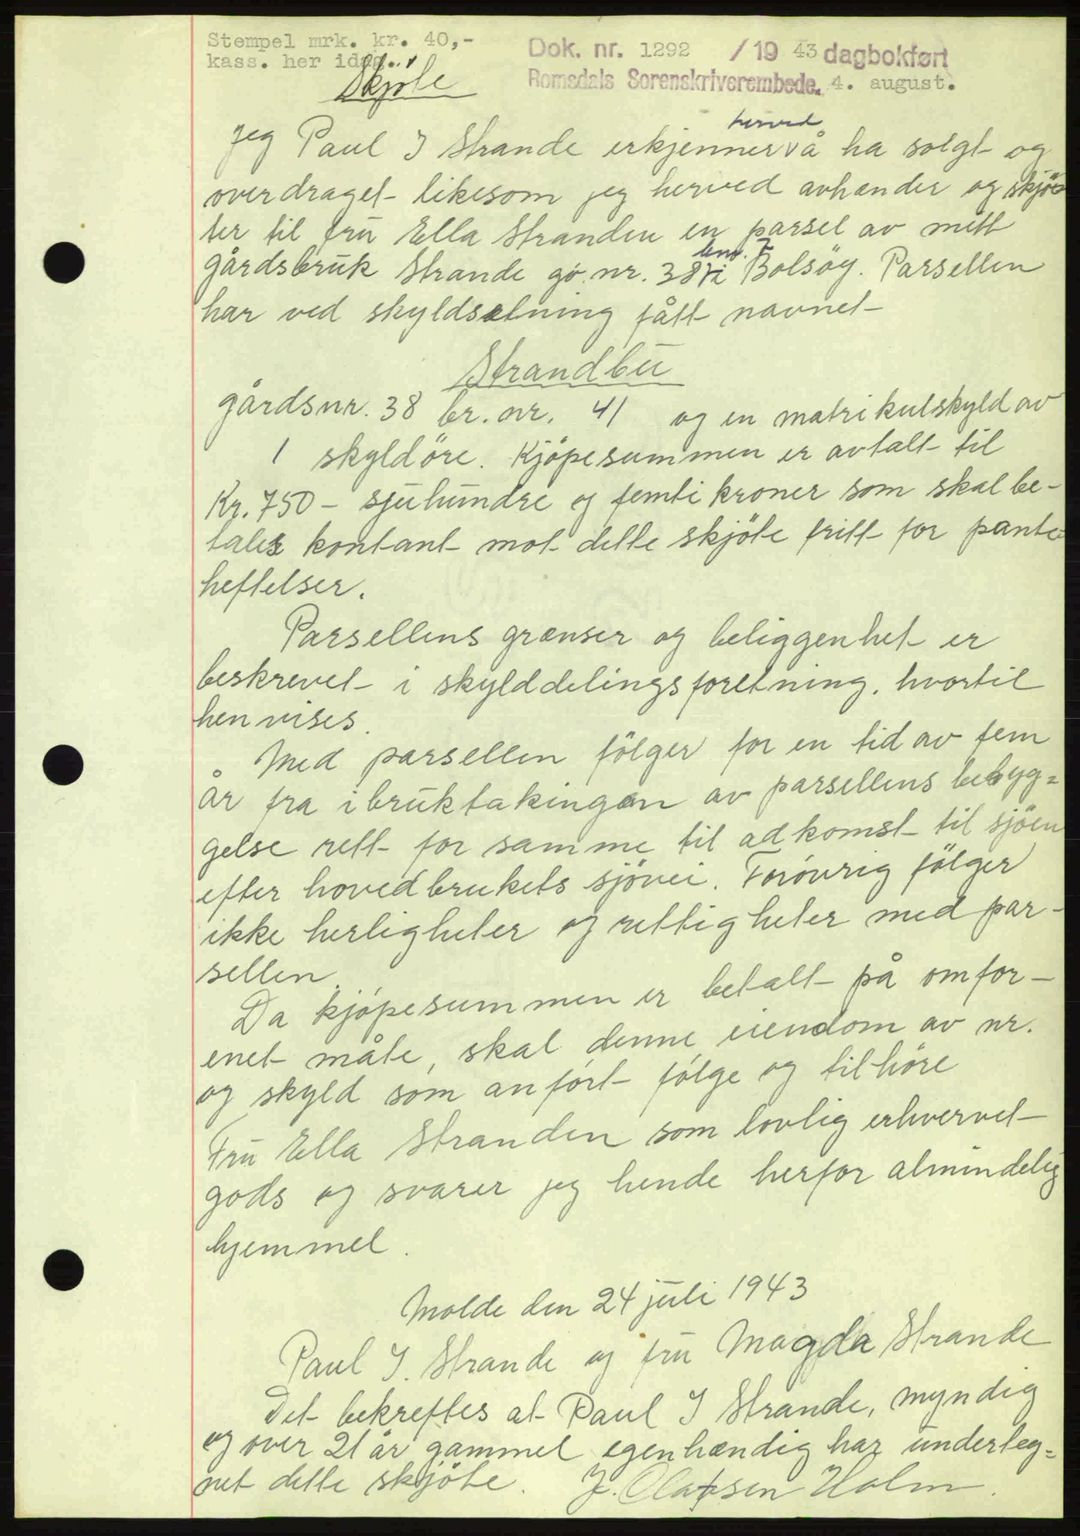 Stempel mrk. kr. 40,-
kass. her idag.
Dok. nr. 1292 / 19 43 dagbokført
Romsdals Sorenskriverembede. 4. august.
Skjöte
Jeg Paul I Strande erkjenner herved å ha solgt og
overdraget likesom jeg herved avhænder og skjö-
ter til fru Ella Stranden en parsel av mitt
gårdsbruk Strande gr. nr. 38 bnr. 7 i Bolsöy. Parsellen
har ved skyldsetning fått navnet
Strandbu
gårdsnr. 38 br. nr. 41 og en matrikulskyld av
1 skyldöre. Kjöpesummen er avtalt til
Kr. 750 - sjuhundre og femti kroner som skal be-
tales kontant mot dette skjöte fritt for pante-
heftelser.
Parsellens grænser og beliggenhet er
beskrevet i skylddelingsforretning, hvortil
henvises.
Med parsellen fölger for en tid av fem
år fra ibruktakingen av parsellens bebyg=
gelse rett for samme til adkomst til sjöen
efter hovedbrukets sjövei. Forövrig fölger
ikke herligheter og rettigheter med par-
sellen.
Da kjöpesummen er betalt på omfor-
enet måte, skal denne eiendom av nr.
og skyld som anfört fölge og tilhöre
Fru Ella Stranden som lovlig erhvervet
gods og svarer jeg hende herfor almindelig
hjemmel.
Molde den 24 juli 1943
Paul I. Strande og fru Magda Strande
Det bekreftes at Paul I Strande, myndig
og over 21 år gammel egenhændig har underteg=
net dette skjöte. J. Olafsen Holm.